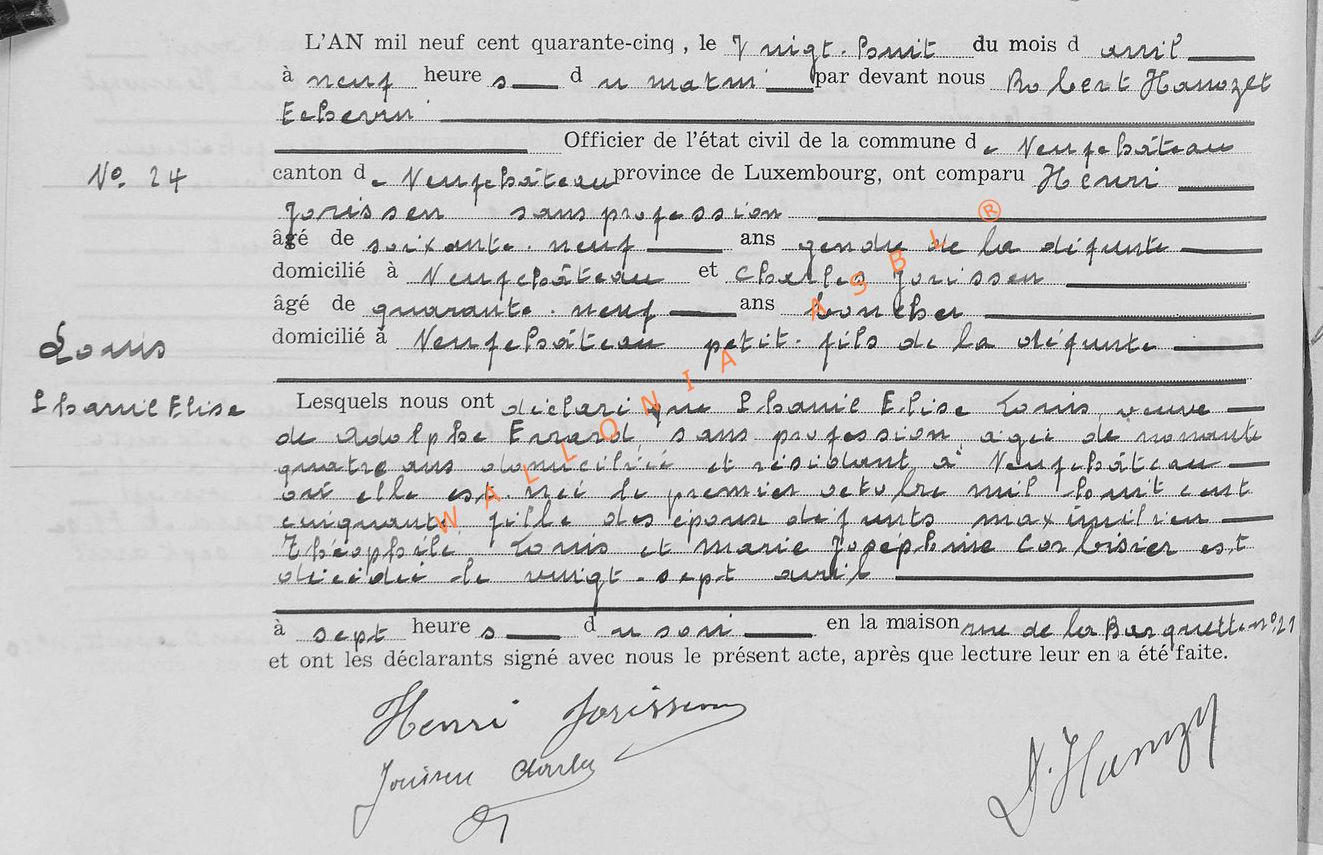 L'AN mil neuf cent quarante-cinq, le Vingt-huit du mois d avril
à neuf heure s du matin par devant nous Robert Hanozet
Echevin
Officier de l'état civil de la commune de Neufchâteau
No. 24 canton de Neufchâteau province de Luxembourg, ont comparu Henri
Jorissen sans profession
âgé de soixante-neuf ans gendre de la défunte
domicilié à Neufchâteau et Charles Jorissen
âgé de quarante-neuf ans boucher
domicilié à Neufchâteau petit-fils de la défunte
Louis
Lesquels nous ont déclaré que Elise Louis, veuve
Elise
de Adolphe Errard, sans profession, agée de nonante
quatre ans domiciliée et résidant à Neufchâteau
où elle est née le premier octobre mil huit cent
cinquante fille des époux défunts Maximilien
Théophile Louis et Marie Josephine Corbisier est
décédée le vingt-sept avril
à sept heure s du soir en la maison rue de la Barquette no 21
et ont les déclarants signé avec nous le présent acte, après que lecture leur en a été faite.
Henri Jorissen
Jorissen Charles
WALLONIA ASBL ®